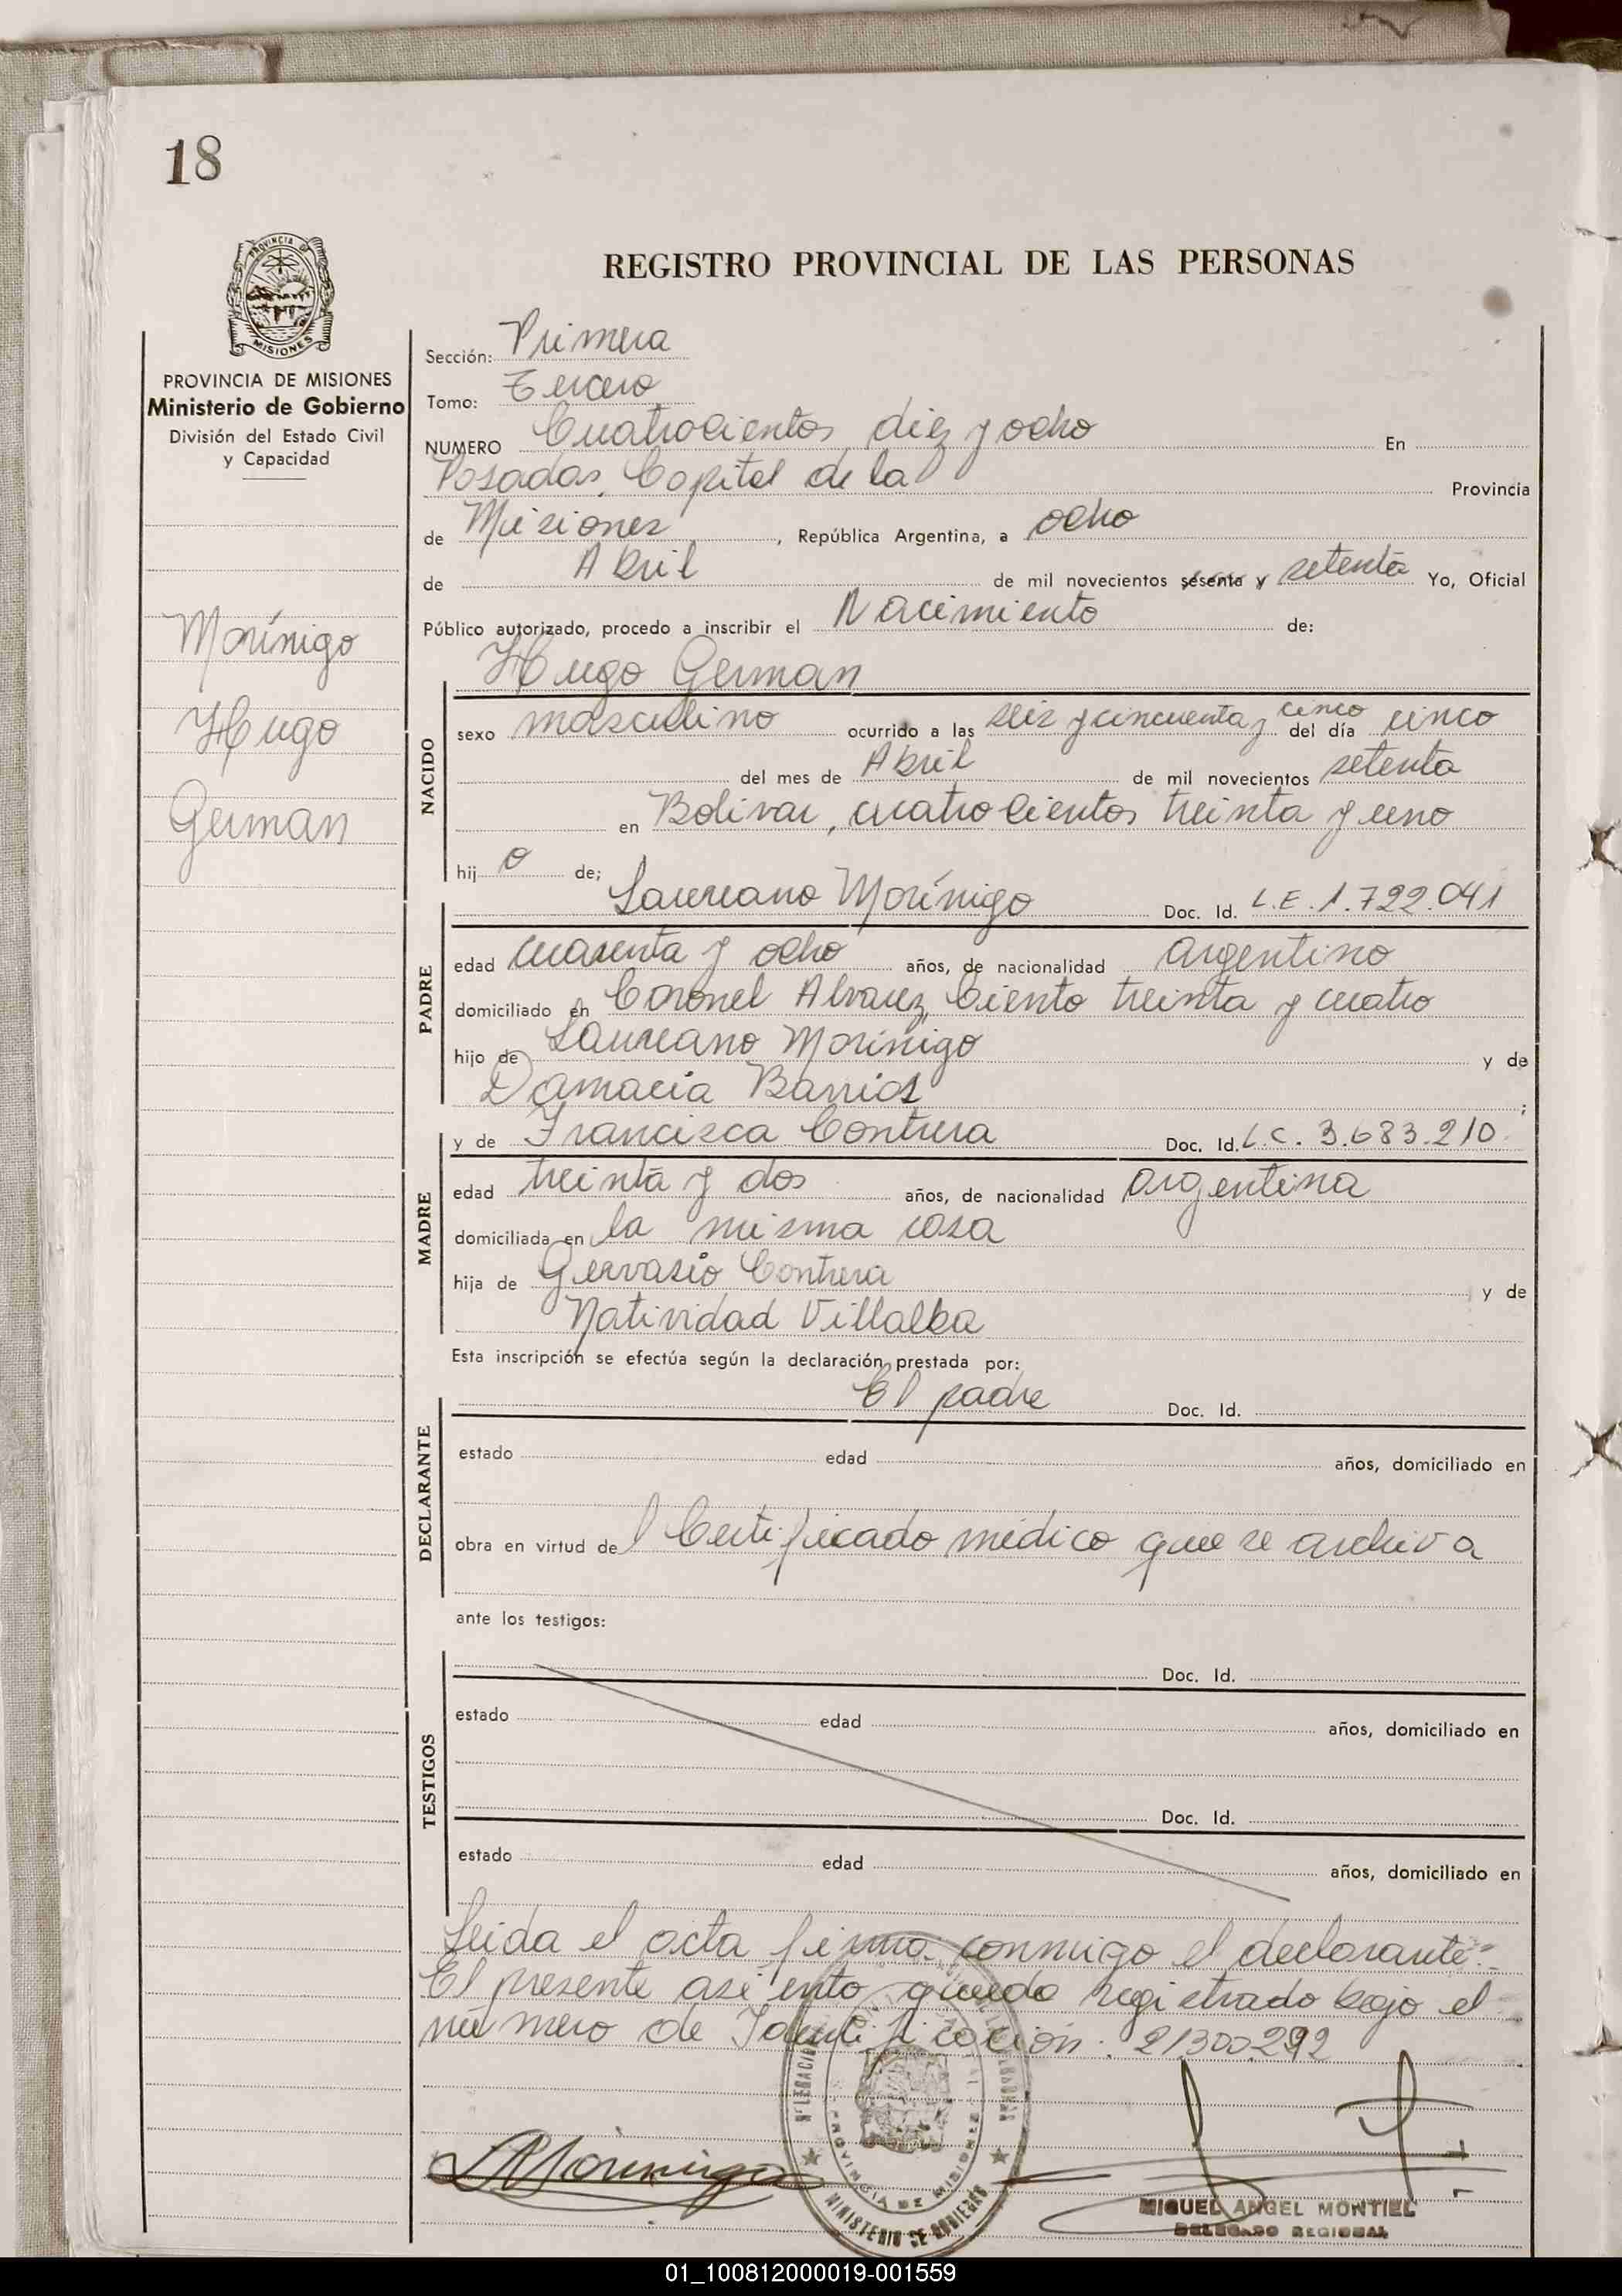 18
PROVINCIA DE
MISIONES
REGISTRO PROVINCIAL DE LAS PERSONAS
PROVINCIA DE MISIONES
Ministerio de Gobierno
División del Estado Civil
y Capacidad
Morínigo
Hugo
German
Sección: Primera
Tomo: Tercero
NUMERO Cuatrocientos diez y ocho En
Posadas, Capital de la Provincia
de Misiones, República Argentina, a ocho
de Abril de mil novecientos sesenta y setenta Yo, Oficial
Público autorizado, procedo a inscribir el Nacimiento de:
Hugo German
NACIDO
sexo masculino ocurrido a las seis y cincuenta y cinco del día cinco
del mes de Abril de mil novecientos setenta
en Bolivar, cuatrocientos treinta y uno
hijo de;
Laureano Morínigo Doc. Id. L.E. 1.722.041
PADRE
edad cuarenta y ocho años, de nacionalidad argentino
domiciliado en Coronel Alvarez, Ciento treinta y cuatro
hijo de Laureano Morínigo y de
Damacia Barrios;
MADRE
y de Francisca Contrera Doc. Id. L.C. 3.683.210
edad treinta y dos años, de nacionalidad argentina
domiciliada en la misma casa
hija de Gervasio Contrera y de
Natividad Villalba
Esta inscripción se efectúa según la declaración prestada por:
El padre Doc. Id.
DECLARANTE
estado edad años, domiciliado en
obra en virtud del Certificado médico que se archiva
ante los testigos:
TESTIGOS
Doc. Id.
estado edad años, domiciliado en
Doc. Id.
estado edad años, domiciliado en
Leida el acta firma conmigo el declarante.-
El presente asiento queda registrado bajo el
número de Identificación: 21.300.292
LMorinigo
PROVINCIA DE MISIONES
MINISTERIO DE GOBIERNO
MIGUEL ANGEL MONTIEL
DELEGADO REGIONAL
01_100812000019-001559